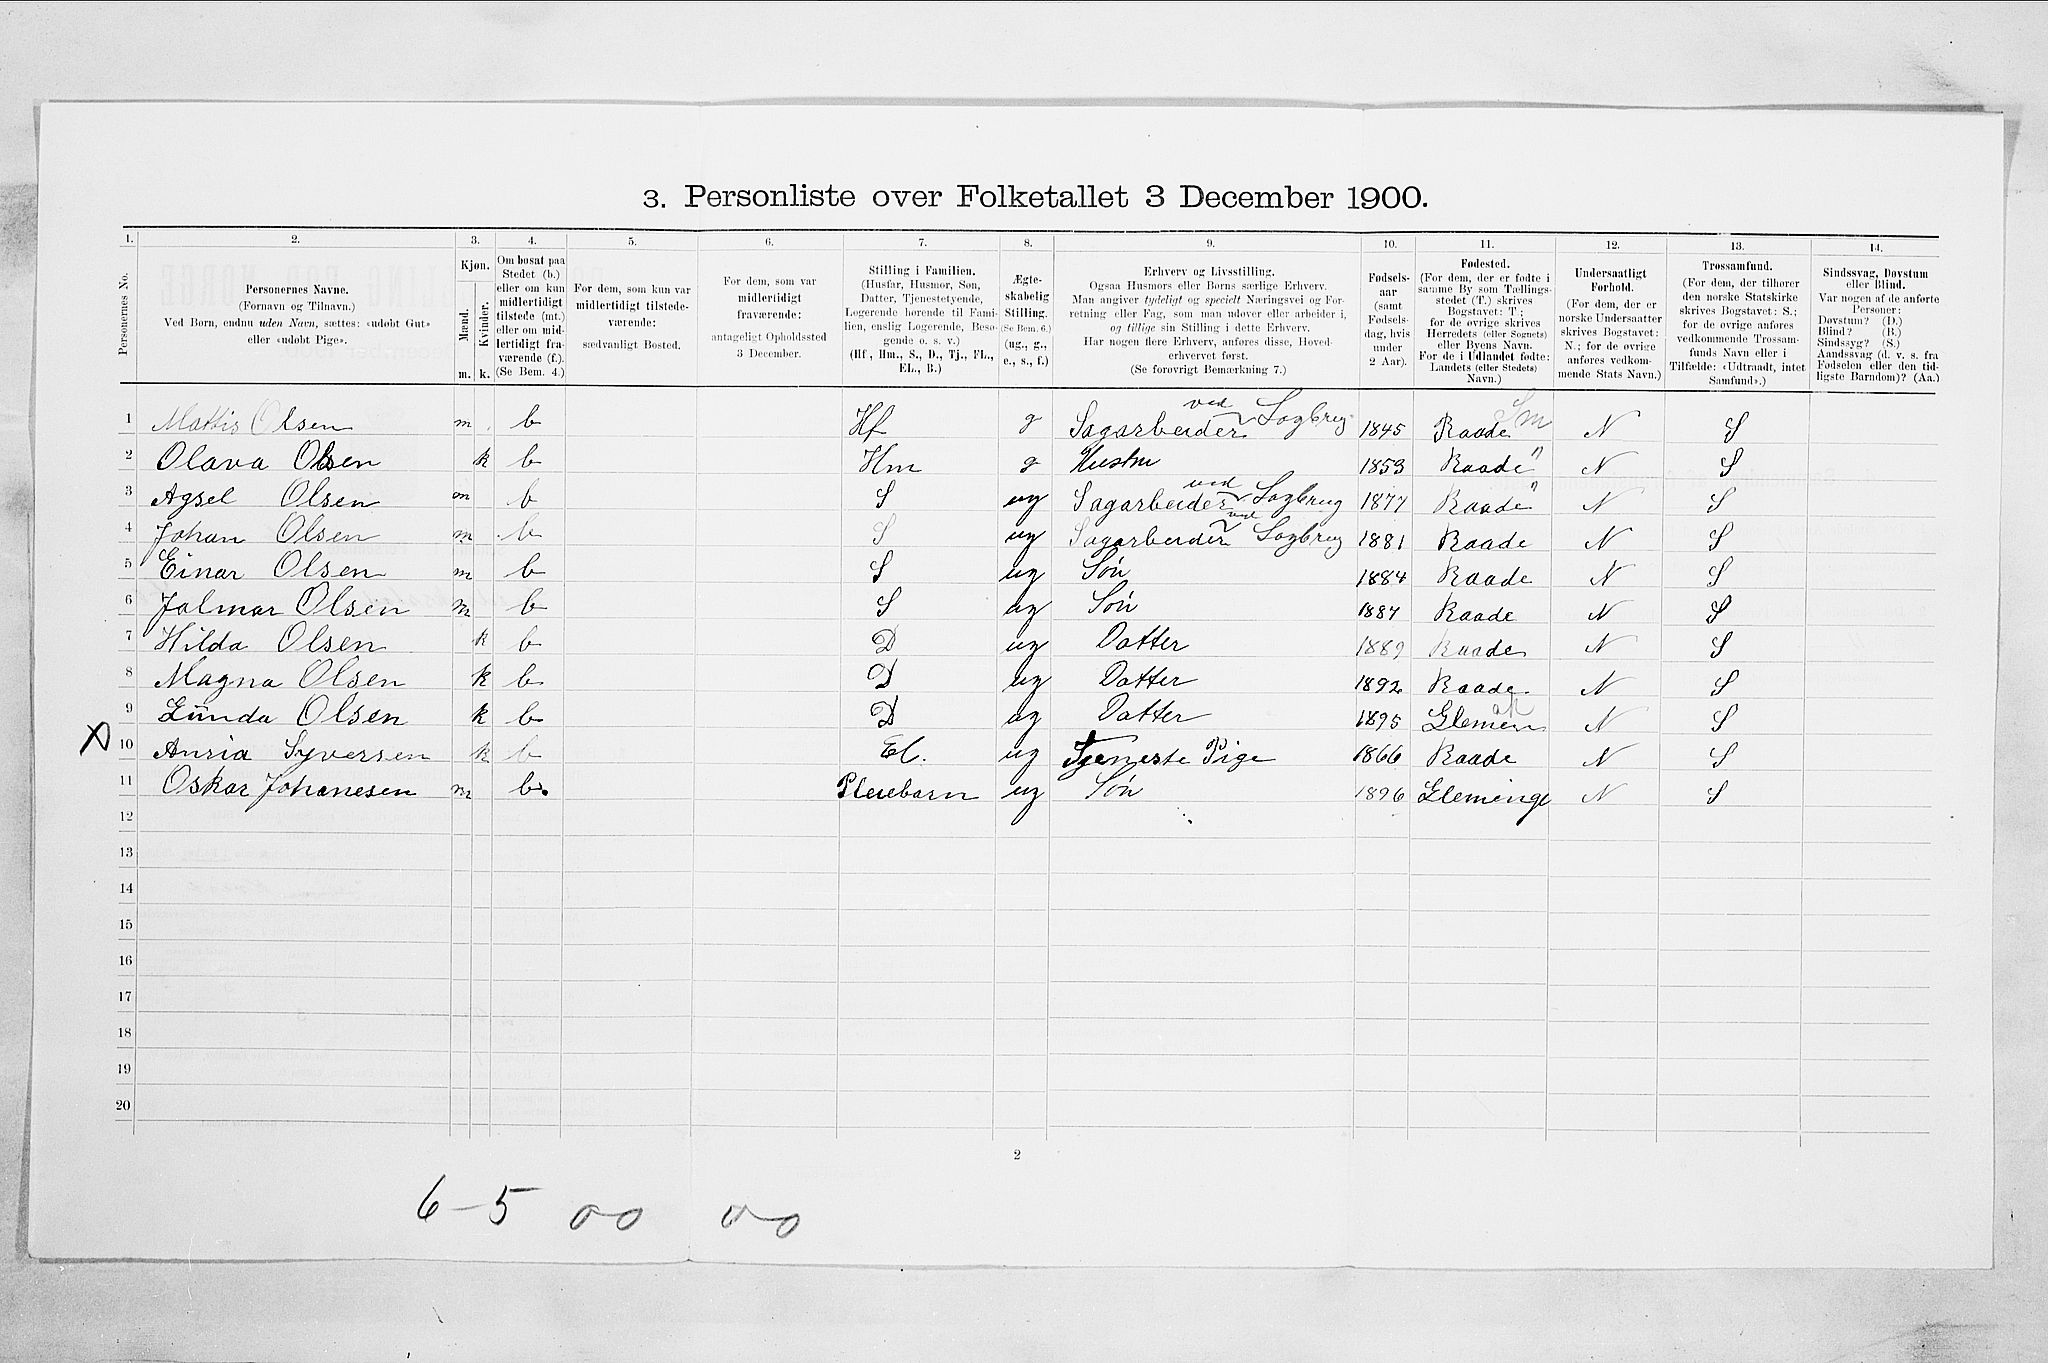 3. Personliste over Folketallet 3 December 1900.
1. 2. 3. 4. 5. 6. 7. 8. 9. 10. 11. 12. 13. 14.
Personernes No.
Personernes Navne.
(Fornavn og Tilnavn.)
Ved Børn, endnu uden Navn, sættes: «udøbt Gut»
eller «udøbt Pige».
Kjøn.
Mænd.
Kvinder.
m. k.
Om bosat paa
Stedet (b.)
eller om kun
midlertidigt
tilstede (mt.)
eller om mid-
lertidigt fra-
værende (f.).
(Se Bem. 4.)
For dem, som kun var
midlertidigt tilstede-
værende:
sædvanligt Bosted.
For dem, som var
midlertidigt
fraværende:
antageligt Opholdssted
3 December.
Stilling i Familien.
(Husfar, Husmor, Søn,
Datter, Tjenestetyende,
Logerende hørende til Fami-
lien, enslig Logerende, Besø-
gende o. s. v.)
(Hf., Hm., S., D., Tj., FL.,
EL., B.)
Ægte-
skabelig
Stilling.
(Se Bem. 6.)
(ug., g.,
e., s., f.)
Erhverv og Livsstilling.
Ogsaa Husmors eller Børns særlige Erhverv.
Man angiver tydeligt og specielt Næringsvei og For-
retning eller Fag, som man udøver eller arbeider i,
og tillige sin Stilling i dette Erhverv.
Har nogen flere Erhverv, anføres disse, Hoved-
erhvervet først.
(Se forøvrigt Bemærkning 7.)
Fødsels-
aar
(samt
Fødsels-
dag, hvis
under
2 Aar).
Fødested.
(For dem, der er fødte i
samme By som Tællings-
stedet (T.) skrives
Bogstavet: T;
for de øvrige skrives
Herredets (eller Sognets)
eller Byens Navn.
For de i Udlandet fødte:
Landets (eller Stedets)
Navn.)
Undersaatligt
Forhold.
(For dem, der er
norske Undersaatter
skrives Bogstavet:
N.; for de øvrige
anføres vedkom-
mende Stats Navn.)
Trossamfund.
(For dem, der tilhører
den norske Statskirke
skrives Bogstavet: S.;
for de øvrige anføres
vedkommende Trossam-
funds Navn eller i
Tilfælde: «Udtraadt, intet
Samfund».)
Sindssvag, Døvstum
eller Blind.
Var nogen af de anførte
Personer:
Døvstum? (D.)
Blind? (B.)
Sindssyg? (S.)
Aandssvag (d. v. s. fra
Fødselen eller den tid-
ligste Barndom)? (Aa.)
1 Mattis Olsen m b Hf g Sagarbeider ved Sagbrug 1845 Raade Sm N S
2 Olava Olsen k b Hm g Hustru 1853 Raade " N S
3 Agsel Olsen m b S ug Sagarbeider ved Sagbrug 1877 Raade " N S
4 Johan Olsen m b S ug Sagarbeider ved Sagbrug 1881 Raade N S
5 Einar Olsen m b S ug Søn 1884 Raade N S
6 Jalmar Olsen m b S ug Søn 1887 Raade N S
7 Hilda Olsen k b D ug Datter 1889 Raade N S
8 Magna Olsen k b D ug Datter 1892 Raade N S
9 Lünda Olsen k b D ug Datter 1895 Glemen N S
X 10 Anria Syversen k b El. ug Tjeneste Pige 1866 Raade N S
11 Oskar Johanesen m b. Pleiebarn ug Søn 1896 Glemenge N S
12
13
14
15
16
17
18
19
20
2
6-5 00 00